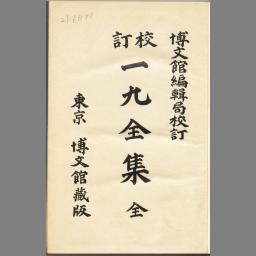 博文館編輯局校訂
校訂
一九全集 全
東京 博文館藏版